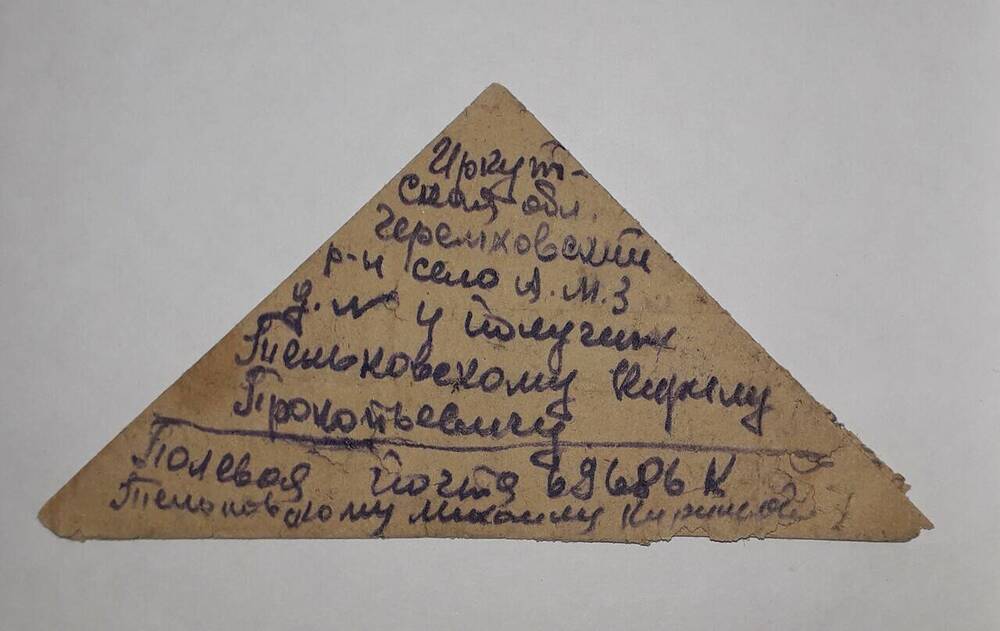 Иркут-
ская обл.
Черемховский
р-н село А.М.З
д. № 4 получить
Тельновскому Кирилу
Прокопьевичу
Полевая почта 69686 К
Тельновскому Михаилу